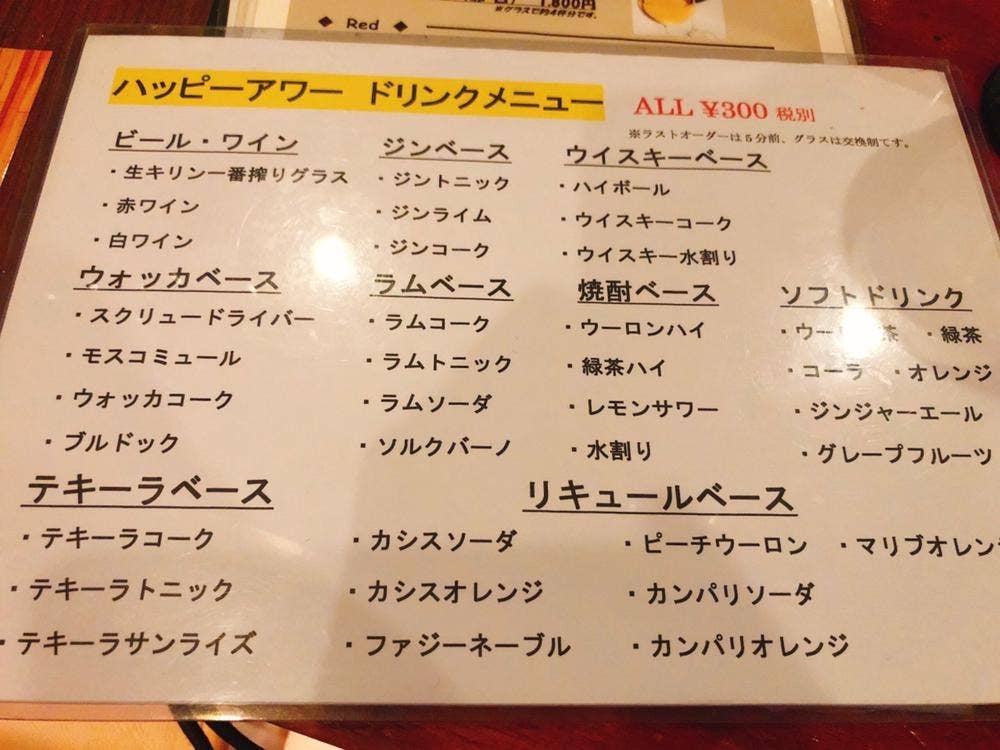 1,800円
※グラスで約4杯分です。
◆ Red ◆
ハッピーアワー ドリンクメニュー
ALL ¥300 税別
※ラストオーダーは5分前、グラスは交換制です。
ビール・ワイン
・生キリン一番搾りグラス
・赤ワイン
・白ワイン
ジンベース
・ジントニック
・ジンライム
・ジンコーク
ウイスキーベース
・ハイボール
・ウイスキーコーク
・ウイスキー水割り
ウォッカベース
・スクリュードライバー
・モスコミュール
・ウォッカコーク
・ブルドック
ラムベース
・ラムコーク
・ラムトニック
・ラムソーダ
・ソルクバーノ
焼酎ベース
・ウーロンハイ
・緑茶ハイ
・レモンサワー
・水割り
ソフトドリンク
・ウーロン茶 ・緑茶
・コーラ ・オレンジ
・ジンジャーエール
・グレープフルーツ
テキーラベース
・テキーラコーク
・テキーラトニック
・テキーラサンライズ
リキュールベース
・カシスソーダ ・ピーチウーロン ・マリブオレンジ
・カシスオレンジ ・カンパリソーダ
・ファジーネーブル ・カンパリオレンジ